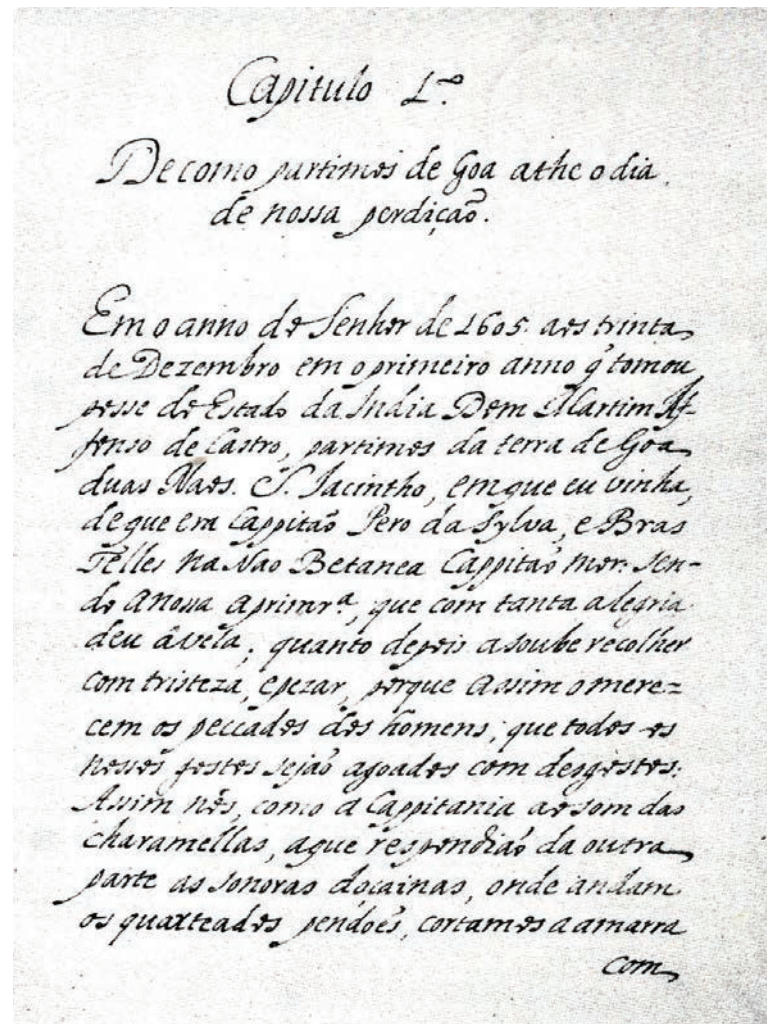 Capitulo 1.º
De como partimos de Goa athe o dia
de nossa perdição.
Em o anno do Senhor de 1605. aos trinta
de Dezembro em o primeiro anno q̃ tomou
posse do Estado da India Dom Martim Af-
fonso de Castro, partimos da terra de Goa
duas Naos. S. Jacintho, em que eu vinha,
de que era Cappitão Pero da Sylva, e Bras
Telles na Nao Betanca Cappitão mor: sen-
do a nossa a primrª, que com tanta alegria
deu â vela, quanto depois a soube recolher
com tristeza, e pezar, porque assim o mere=
cem os peccados dos homens, que todos os
nossos gostos sejaõ agoados com desgostos:
Assim nós, como a Cappitania ao som das
charamellas, a que respondiaõ da outra
parte as sonoras doçainas, onde andam
os quarteados pendoẽs, cortamos a amarra
com